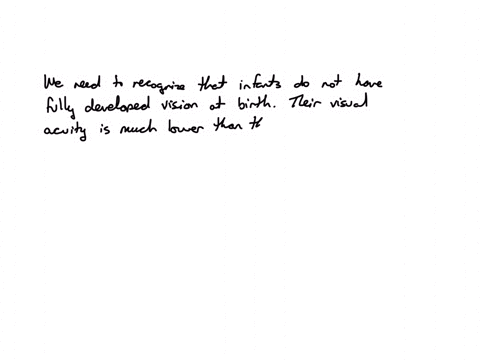 We need to recognize that infants do not have
fully developed vision at birth. Their visual
acuity is much lower than th